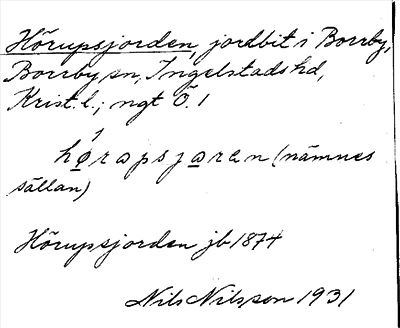 Hörupsjorden, jordbit i Borrby,
Borrby sn, Ingelstads hd,
Krist. l.; ngt Ö. 1
hørapsjaren (nämnes
sällan)
Hörupsjorden jb 1874
Nils Nilsson 1931